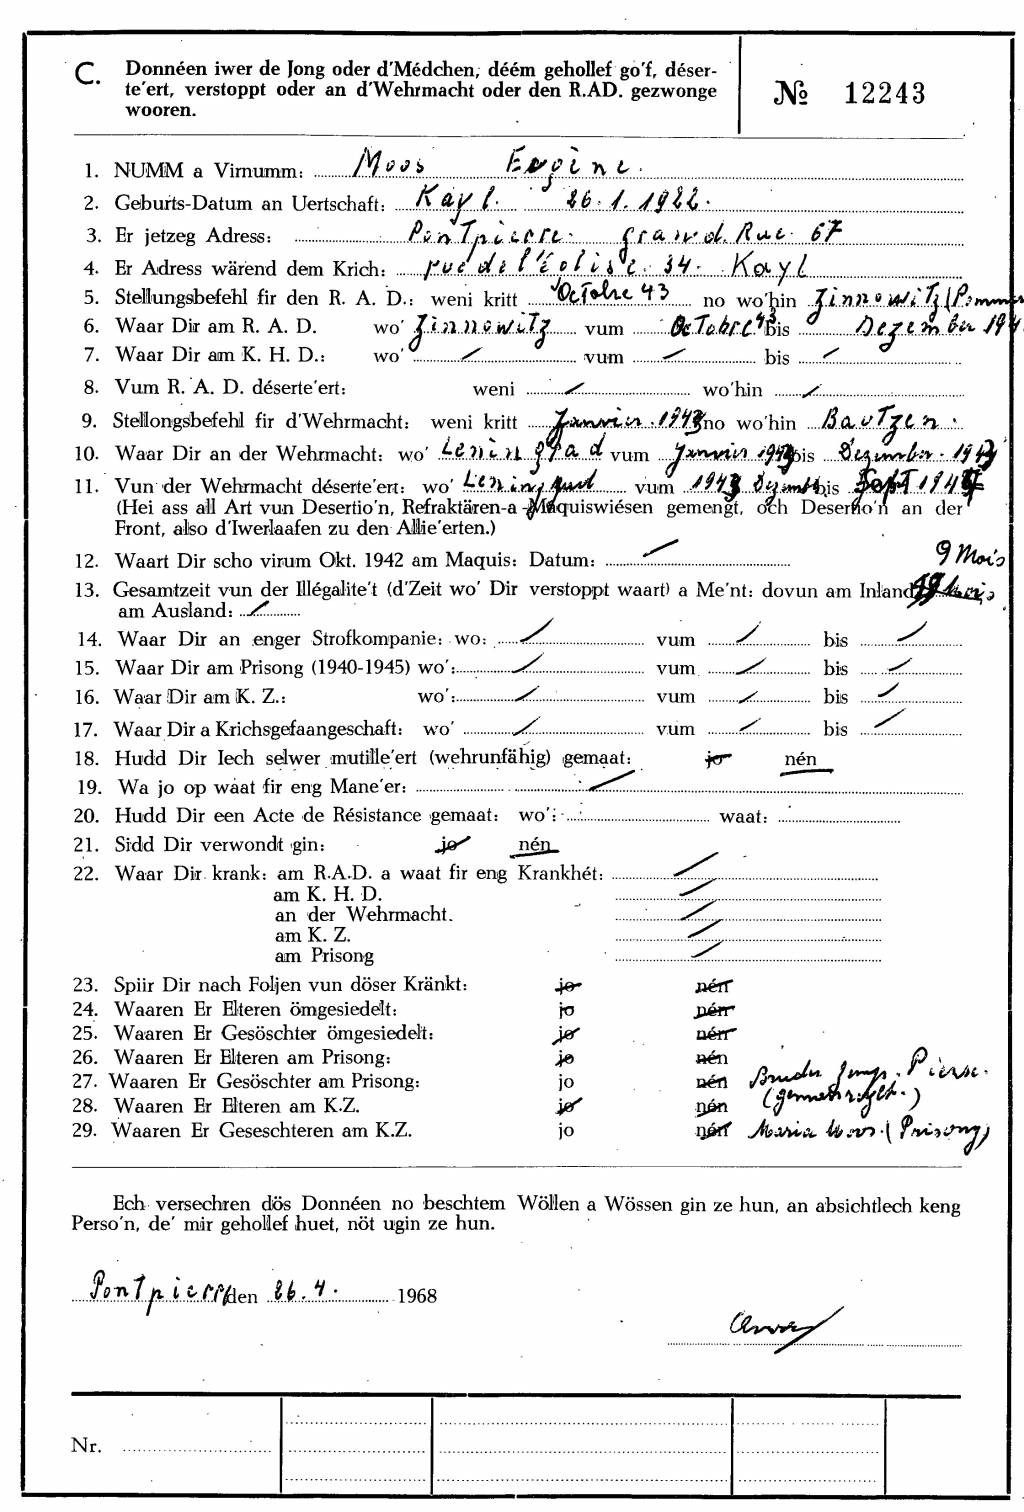 C. Donnéen iwer de Jong oder d'Médchen, déém gehollef go'f, déser-
te'ert, verstoppt oder an d'Wehrmacht oder den R.AD. gezwonge
wooren.
№ 12243
1. NUMM a Virnumm: Moos Eugène.
2. Geburts-Datum an Uertschaft: Kayl. 26.1.1922.
3. Er jetzeg Adress: Pontpierre. grand. Rue. 67
4. Er Adress wärend dem Krich: rue de l'église. 34. Kayl
5. Stellungsbefehl fir den R. A. D.: weni kritt Octobre 43 no wo'hin Zinnowitz (Pommer
6. Waar Dir am R. A. D. wo' Zinnowitz vum Octobre 43 bis Dezember 194
7. Waar Dir am K. H. D.: wo' / vum / bis /
8. Vum R. A. D. déserte'ert: weni / wo'hin /
9. Stellongsbefehl fir d'Wehrmacht: weni kritt Janvier. 1943 no wo'hin Bautzen.
10. Waar Dir an der Wehrmacht: wo' Leningrad vum Janvier 1943 bis Dezember. 1943
11. Vun der Wehrmacht déserte'ert: wo' Leningrad vum 1943 Dezemb bis Sept 194
(Hei ass all Art vun Desertio'n, Refraktären-a -Maquiswiésen gemengt, och Desertio'n an der
Front, also d'Iwerlaafen zu den Allie'erten.)
12. Waart Dir scho virum Okt. 1942 am Maquis: Datum: /
9 Mois
13. Gesamtzeit vun der Illégalite't (d'Zeit wo' Dir verstoppt waart) a Me'nt: dovun am Inland
am Ausland: /
14. Waar Dir an enger Strofkompanie: wo: / vum / bis /
15. Waar Dir am Prisong (1940-1945) wo': / vum / bis /
16. Waar Dir am K. Z.: wo': / vum / bis /
17. Waar Dir a Krichsgefaangeschaft: wo' / vum / bis /
18. Hudd Dir Iech selwer mutille'ert (wehrunfähig) gemaat: jo nén
19. Wa jo op waat fir eng Mane'er: /
20. Hudd Dir een Acte de Résistance gemaat: wo': waat:
21. Sidd Dir verwondt gin: jo nén
22. Waar Dir krank: am R.A.D. a waat fir eng Krankhét: /
am K. H. D. /
an der Wehrmacht. /
am K. Z. /
am Prisong /
23. Spiir Dir nach Foljen vun döser Kränkt: jo nén
24. Waaren Er Elteren ömgesiedelt: jo nén
25. Waaren Er Gesöschter ömgesiedelt: jo nén
26. Waaren Er Elteren am Prisong: jo nén
27. Waaren Er Gesöschter am Prisong: jo nén Bruder Jemp. Pierre.
28. Waaren Er Elteren am K.Z. jo nén
29. Waaren Er Geseschteren am K.Z. jo nén Maria Moos. (Prisong)
Ech versechren dös Donnéen no beschtem Wöllen a Wössen gin ze hun, an absichtlech keng
Perso'n, de' mir gehollef huet, nöt ugin ze hun.
Pontpierre den 26.4. 1968
Nr.